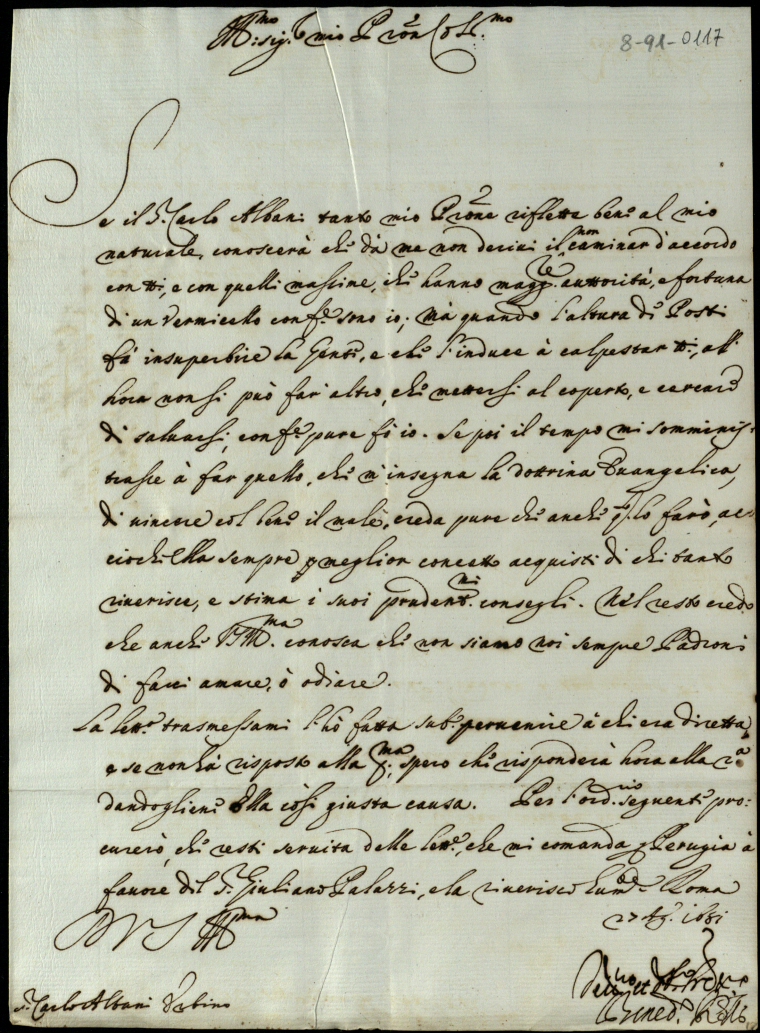 Ill:mo sig.r mio P̃ron Col.mo
8-91-0117
Se il S.r Carlo Albani tanto mio P̃rone riflette bene al mio
naturale, conoscerà che dà me non derivi il non caminar d'accordo
con tti, e con quelli massime, che hanno magg.re auttorità, e fortuna
di un vermicello conf.e sono io; Mà quando l'altura di Posti
fà insuperbire la Gente, e che l'induce à calpestar tti, all'
hora non si può far altro, che mettersi al coperto, e cercare
di salvarsi, conf.e pure fò io. Se poi il tempo mi somminis-
trasse à far quello, che m'insegna la dottrina Evangelica,
di vincere col bene il male, creda pure che anche q.o lo farò, ac-
ciochè Ella sempre meglior concetto acquisti di chi tanto
riverisce, e stima i suoi prudent.mi consegli. Nel resto credo
che anche V.S. Ill.ma conosca che non siamo noi sempre Padroni
di farci amare, ò odiare.
La lett.a trasmessami l'hò fatta sub.o pervenire à chi era diretta,
e se non hà risposto alla p.ma, spero che risponderà hora alla 2.a
dandogliene Ella così giusta causa. Per l'ord.rio seguente pro:
curerò, che resti servita delle lett.e, che mi comanda p Perugia à
favore del S.r Giuliano Palazzi, e la riverisco hum.te Roma
27 1681
D V S Ill.ma
S.r Carlo Albani Urbino
Dev.mo et
Bened.o